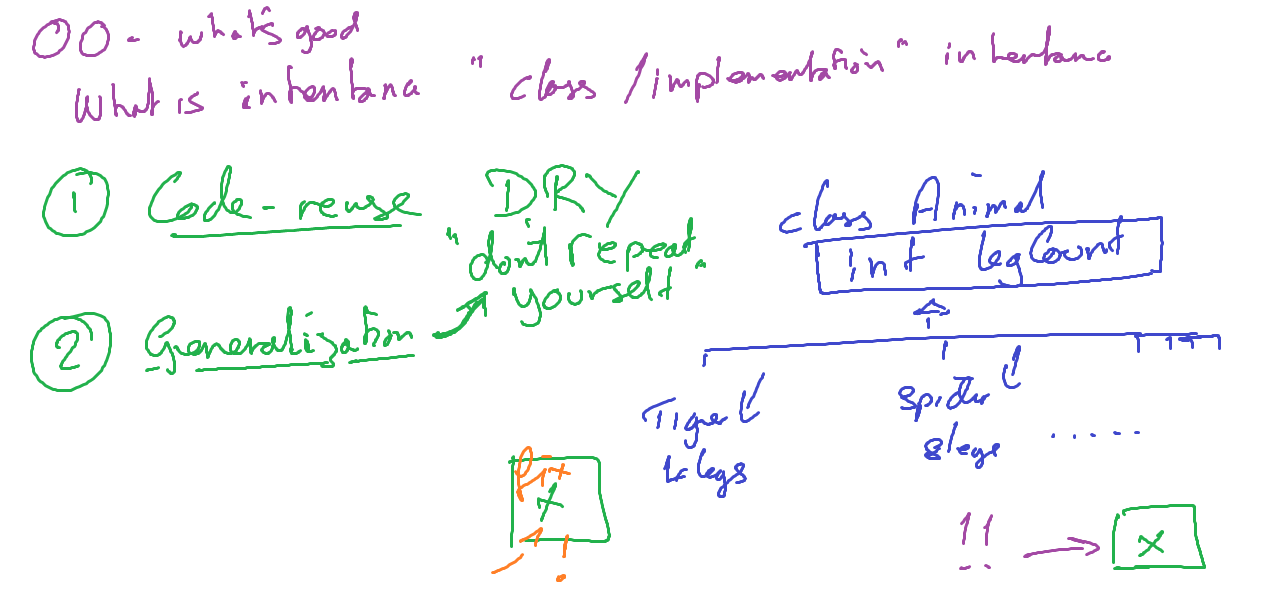 OO - what's good
What is inheritance "class/implementation" inheritance
① Code-reuse DRY
"don't repeat
yourself"
② Generalization
class Animal
int legCount
Tiger
4 legs
Spider
8 legs
.....
fix
x
!
!! → x